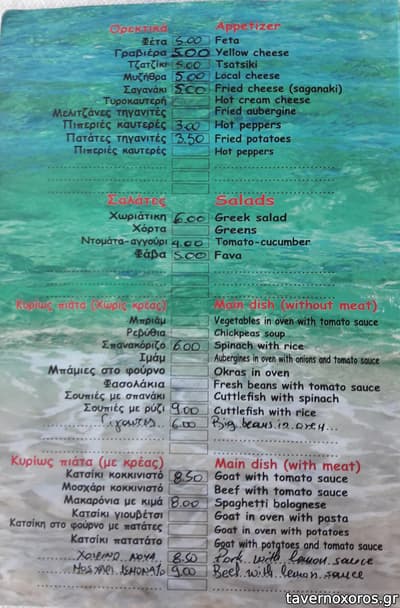 Ορεκτικά Appetizer
Φέτα 5.00 Feta
Γραβιέρα 5.00 Yellow cheese
Τζατζίκι 5.00 Tsatsiki
Μυζήθρα 5.00 Local cheese
Σαγανάκι 5.00 Fried cheese (saganaki)
Τυροκαυτερή Hot cream cheese
Μελιτζάνες τηγανιτές Fried aubergine
Πιπεριές καυτερές 3.00 Hot peppers
Πατάτες τηγανιτές 3.50 Fried potatoes
Πιπεριές καυτερές Hot peppers
Σαλάτες Salads
Χωριάτικη 6.00 Greek salad
Χόρτα Greens
Ντομάτα-αγγούρι 4.00 Tomato-cucumber
Φάβα 5.00 Fava
Κυρίως πιάτα (Χωρίς κρέας) Main dish (without meat)
Μπριάμ Vegetables in oven with tomato sauce
Ρεβύθια Chickpeas soup
Σπανακόριζο 6.00 Spinach with rice
Σιμάμ Aubergines in oven with onions and tomato sauce
Μπάμιες στο φούρνο Okras in oven
Φασολάκια Fresh beans with tomato sauce
Σουπιές με σπανάκι Cuttlefish with spinach
Σουπιές με ρύζι 9.00 Cuttlefish with rice
Γίγαντες 6.00 Big beans in oven
Κυρίως πιάτα (με κρέας) Main dish (with meat)
Κατσίκι κοκκινιστό 8.50 Goat with tomato sauce
Μοσχάρι κοκκινιστό Beef with tomato sauce
Μακαρόνια με κιμά 8.00 Spaghetti bolognese
Κατσίκι γιουβέτσι Goat in oven with pasta
Κατσίκη στο φούρνο με πατάτες Goat in oven with potatoes
Κατσίκι πατατάτο Goat with potatoes and tomato sauce
Χοιρινό 8.50 Pork with lemon sauce
Μοσχάρι λεμονάτο 9.00 Beef with lemon sauce
tavernoxoros.gr